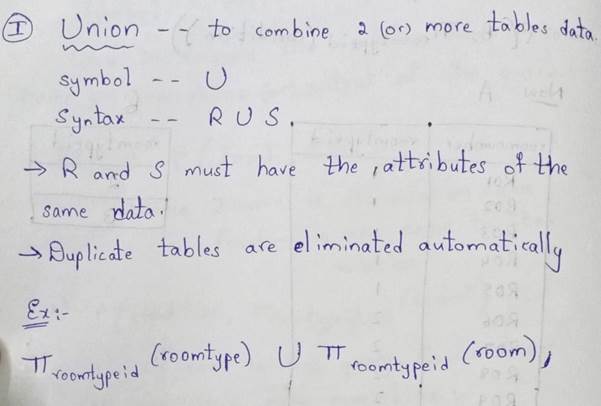 I Union -- to combine 2 (or) more tables data.
symbol -- U
Syntax -- R U S.
→ R and S must have the attributes of the
same data.
→ Duplicate tables are eliminated automatically
Ex:-
π roomtypeid (roomtype) U π roomtypeid (room)